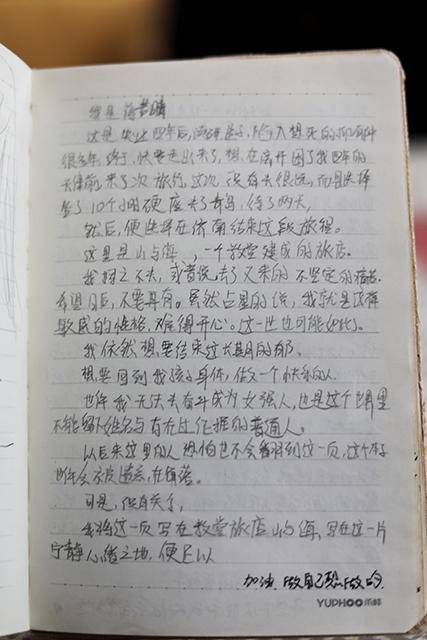 我是
这是失业四年后, 陷入想死的
很多年, 终于, 快要走出来了, 想, 在离开困了我四年的
天津前, 来了次旅行, 这次没有去很远, 而且选择
坐了10个小时硬座去了青岛, 待了两天,
然后, 便选择在济南结束这段旅程。
这里是山与海, 一个教堂建成的旅店。
我 之不去, 或者说去了又来的不坚定的
希望日后, 不要再有。虽然占星的说, 我就是这样
敏感的性格, 难得开心。这一世也可能如此。
我依然想要结束这长期的郁。
想要回到我该的身体, 做一个快乐的人
也许我无法去奋斗成为女强人, 也是这个世界里
不能 姓名与有 的普通人。
以后来这里的人恐怕也不会看到这一页, 这个本子
也许会不 遗忘, 在角落。
可是, 没有关系,
我将这一页写在教堂旅店山与海, 写在这一片
宁静人 之地, 便足以
加油 做自己想做的
YUPHOO